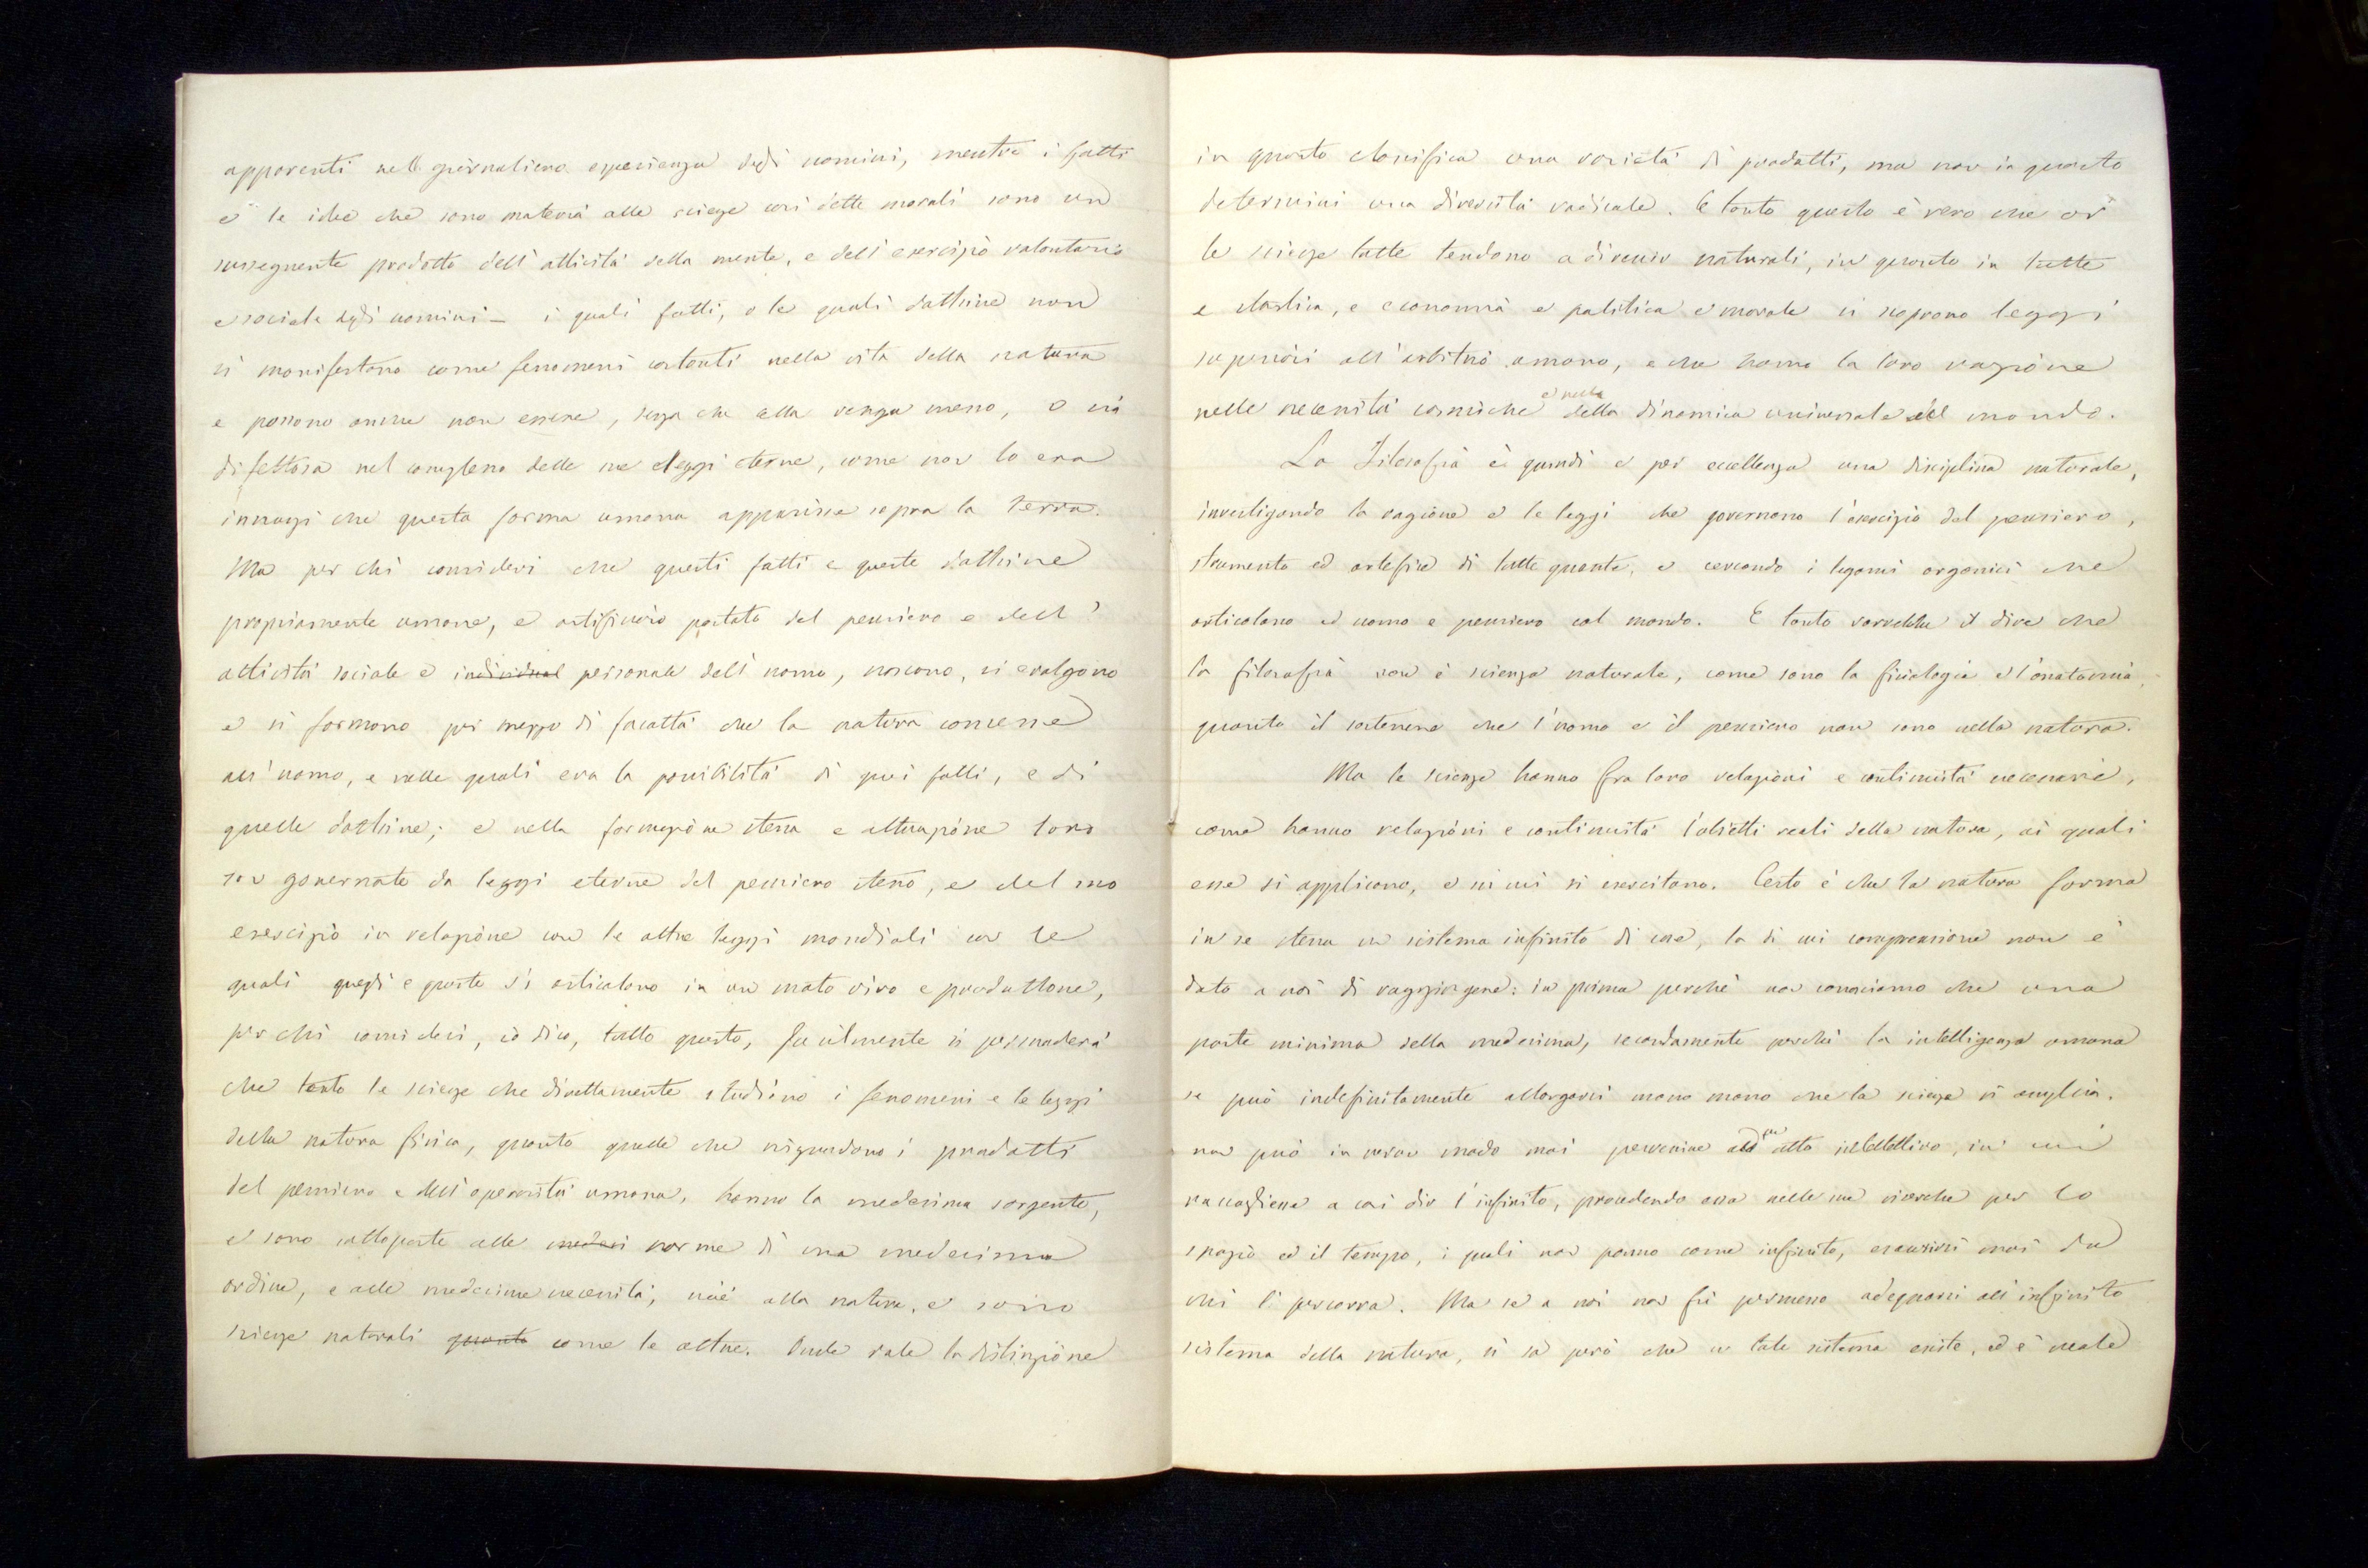 apparenti nell giornaliera esperienza degli uomini, mentre i fatti
e le idee che sono materia alle scienze così dette morali sono un
susseguente prodotto dell'attività della mente, e dell'esercizio volontario
e sociale degli uomini – i quali fatti, o le quali dottrine non
si manifestano come fenomeni costanti nella vita della natura
e possono anche non essere, senza che ella venga meno, o sia
difettosa nel complesso delle sue leggi eterne, come non lo era
innanzi che questa forma umana apparisse sopra la terra.
Ma per chi consideri che questi fatti e queste dottrine
propriamente umane, e artificioso portato del pensiero e dell'
attività sociale e individual personale dell'uomo, nascono, si svolgono
e si formano per mezzo di facoltà che la natura concesse
all'uomo, e nelle quali era la possibilità di quei fatti, e di
quelle dottrine; e nella formazione stessa e attuazione loro
son governate da leggi eterne del pensiero stesso, e del suo
esercizio in relazione con le altre leggi mondiali con le
quali quegli e queste si articolano in un moto vivo e produttore,
per chi consideri, io dico, tutto questo, facilmente si persuaderà
che tanto le scienze che direttamente studiano i fenomeni e le leggi
della natura fisica, quanto quelle che risguardono i prodotti
del pensiero e dell'operosità umana, hanno la medesima sorgente,
e sono sottoposte alle medesi norme di una medesimo
ordine, e alle medesime necessità, cioè alla natura, e sono
scienze naturali quanto come le altre. Onde vale la distinzione
in quanto classifica una varietà di prodotti, ma non in quanto
determini una diversità radicale. E tanto questo è vero che or
le scienze tutte tendono a divenir naturali, in quanto in tutte
e storica, e economia e politica e morale si scoprono leggi
superiori all'arbitrio umano, e che hanno la loro ragione
nelle necessità cosmiche e nella della dinamica universale del mondo.
La Filosofia è quindi e per eccellenza una disciplina naturale,
investigando la ragione e le leggi che governano l'esercizio del pensiero,
strumento ed artefice di tutte quante, e cercando i legami organici che
articolano ed uomo e pensiero col mondo. E tanto varrebbe il dire che
la filosofia non è scienza naturale, come sono la fisiologia e l'anatomia,
quanto il sostenere che l'uomo e il pensiero non sono nella natura.
Ma le scienze hanno fra loro relazioni e continuità necessarie,
come hanno relazioni e continuità l'obietti reali della natura, ai quali
esse si applicano, e in cui si esercitano. Certo è che la natura forma
in se stessa un sistema infinito di cose, la di cui comprensione non è
dato a noi di raggiungere: in prima perchè non conosciamo che una
parte minima della medesima, secondamente perchè la intelligenza umana
se può indefinitamente allargarsi mano mano che la scienza si amplia,
non può in verun modo mai pervenire ad atto intellettivo, in cui
raccogliesse a così dir l'infinito, procedendo essa nelle sue ricerche per lo
spazio ed il tempo, i quali non ponno come infinito, esaurirsi mai da
chi li percorra. Ma se a noi non fu permesso adeguarci all'infinito
sistema della natura, si sa però che un tale sistema esiste, ed è reale